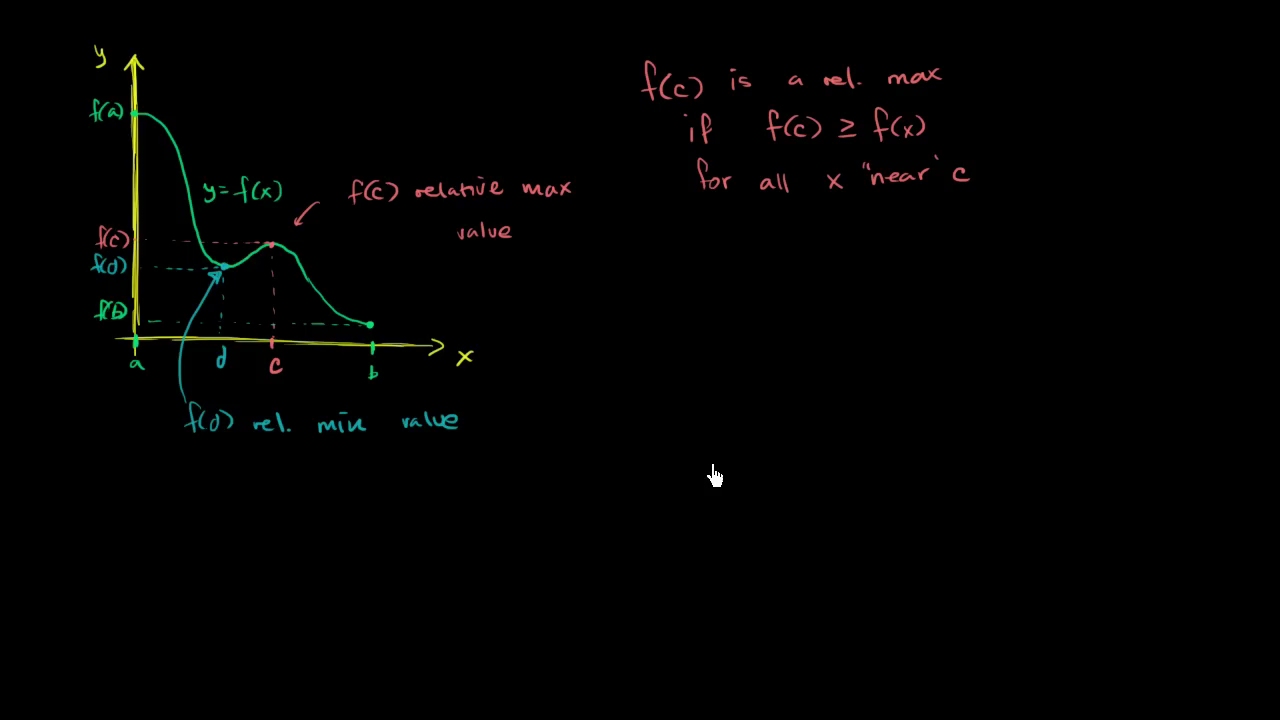 y
f(a)
y=f(x)
f(c) relative max
value
f(c)
f(d)
f(b)
a
d
c
b
x
f(d) rel. min value
f(c) is a rel. max
if f(c) ≥ f(x)
for all x "near" c